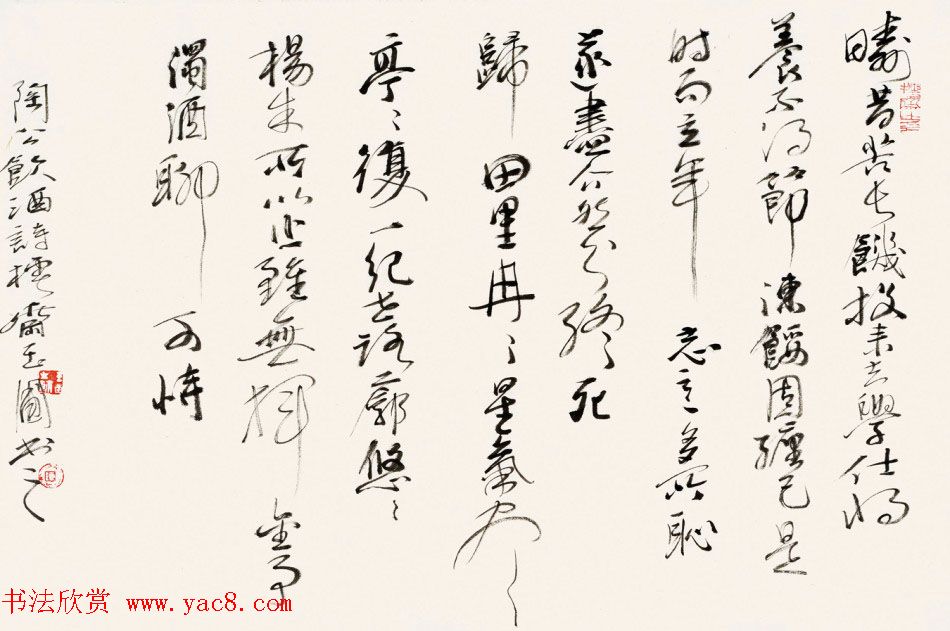 疇昔苦长饑投耒去學仕将
養不得節凍餒固纏己是
时向立年志意多所恥
遂盡介然分終死
歸田里冉々星氣流
亭々復一紀世路廓悠々
楊朱所以止雖無揮金事
濁酒聊可恃
陶公飲酒詩齋玉书之
书法欣赏 www.yac8.com